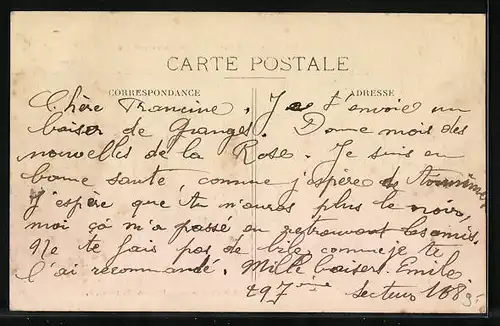 CARTE POSTALE
CORRESPONDANCE
ADRESSE
Chère Francine. Je t'envoie un
baiser de Granges. Donne mois des
nouvelles de la Rose. Je suis en
bonne santé, comme j'espère de
J'espère que tu n'auras plus le noir,
moi çà m'a passé en retrouvant les amis.
Ne te fais pas de bile comme je te
l'ai recommandé. Mille baisers. Emile
497ème secteur 168